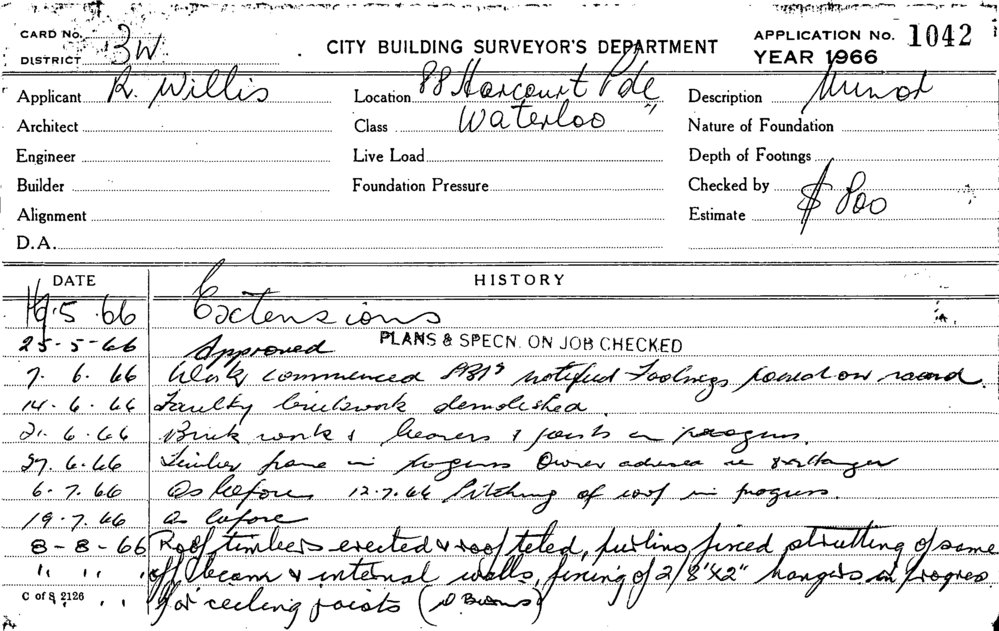 CARD No.
DISTRICT 3W
CITY BUILDING SURVEYOR'S DEPARTMENT
APPLICATION No. 1042
YEAR 1966
Applicant R. Willis
Location 88 Harcourt Pde
Description Minor
Architect
Class Waterloo
Nature of Foundation
Engineer
Live Load
Depth of Footings
Builder
Foundation Pressure
Checked by
Alignment
Estimate $800
D.A.
DATE
HISTORY
19.5.66 Extensions
25-5-66 Approved PLANS & SPECN. ON JOB CHECKED
7. 6. 66 Work commenced notified Footings poured on
14. 6. 66 Faulty brickwork demolished.
21. 6. 66 Brick work & bearers & joists in progress.
27. 6. 66 Timber frame in progress Owner advised re
6. 7. 66 As before 12.7.66 Pitching of roof in progress.
19. 7. 66 as before
8-8-66 Roof timbers erected & roof tiled, purlins fixed strutting of same
" " " off beam & internal walls, fixing of 2/8"x2" hangers in progress
" " for ceiling joists
C of S 2126